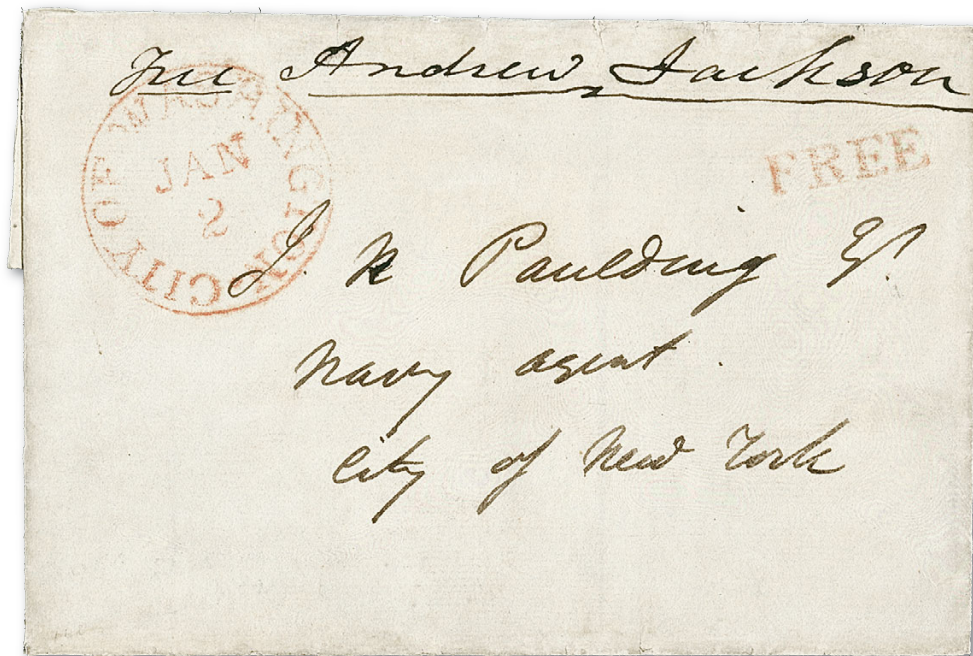 Free Andrew Jackson
CITY OF WASHINGTON
JAN
2
FREE
J. K Paulding Esq.
Navy agent.
City of New York